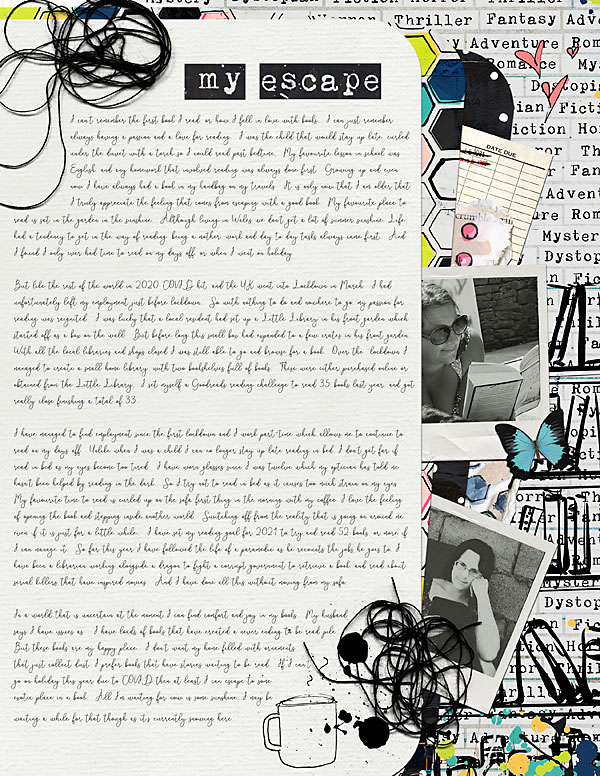 my escape
I can't remember the first book I read or how I fell in love with books. I can just remember
always having a passion and a love for reading. I was the child that would stay up late, curled
under the duvet with a torch so I could read past bedtime. My favourite lesson in school was
English and any homework that involved reading was always done first. Growing up and even
now I have always had a book in my handbag on my travels. It is only now that I am older that
I truly appreciate the feeling that comes from escaping with a good book. My favourite place to
read is sat in the garden in the sunshine. Although living in Wales we don't get a lot of summer sunshine. Life
had a tendency to get in the way of reading. Being a mother, work and day to day tasks always came first. And
I found I only ever had time to read on my days off or when I went on holiday.
But like the rest of the world in 2020 COVID hit and the UK went into Lockdown in March. I had
unfortunately left my employment just before lockdown. So with nothing to do and nowhere to go my passion for
reading was reignited. I was lucky that a local resident had set up a Little Library in his front garden which
started off as a box on the wall. But before long this small box had expanded to a few crates in his front garden.
With all the local libraries and shops closed I was still able to go and browse for a book. Over the lockdown I
managed to create a small home library with two bookshelves full of books. These were either purchased online or
obtained from the Little Library. I set myself a Goodreads reading challenge to read 35 books last year, and got
really close finishing a total of 33.
I have managed to find employment since the first lockdown and I work part-time which allows me to continue to
read on my days off. Unlike when I was a child I can no longer stay up late reading in bed. I don't get far if
read in bed as my eyes become too tired. I have worn glasses since I was twelve which my optician has told me
hasn't been helped by reading in the dark. So I try not to read in bed as it causes too much strain on my eyes.
My favourite time to read is curled up on the sofa first thing in the morning with my coffee. I love the feeling
of opening the book and stepping inside another world. Switching off from the reality that is going on around me
even if it is just for a little while. I have set my reading goal for 2021 to try and read 52 books, or more if
I can manage it. So far this year I have followed the life of a paramedic as he recounts the jobs he goes to, I
have been a librarian working alongside a dragon to fight a corrupt government to retrieve a book and read about
serial killers that have inspired movies. And I have done all this without moving from my sofa.
In a world that is uncertain at the moment I can find comfort and joy in my books. My husband
says I have issues as I have loads of books that have created a never ending to be read pile.
But these books are my happy place. I don't want my home filled with ornaments
that just collect dust, I prefer books that have stories waiting to be read. If I can't
go on holiday this year due to COVID then at least I can escape to some
exotic place in a book. All I'm waiting for now is some sunshine, I may be
waiting a while for that though as it's currently snowing here.
Thriller Fantasy Adv
Adventure Rom
Romance Mys
Dystopi
ian Fictio
iction Hor
DATE DUE
Mystery
Dystop
Horror
Mystery
Dystop
Thriller
Fantasy Adventu
Adventure Rom